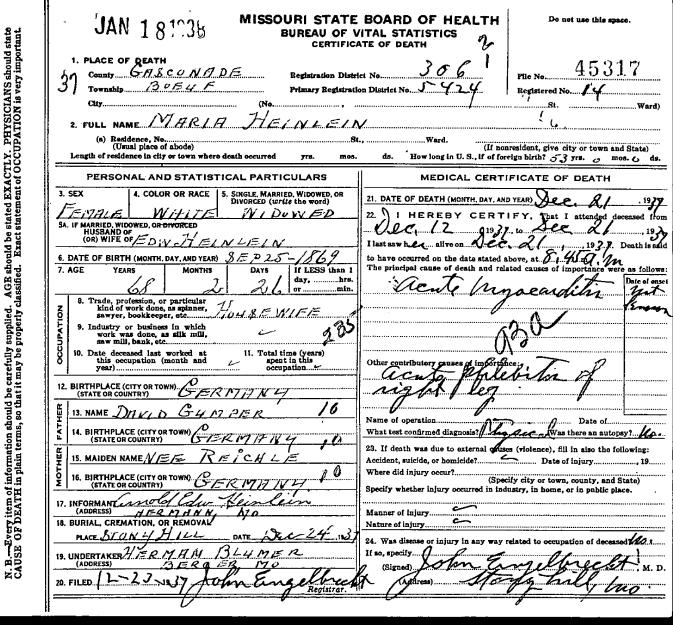 JAN 18 1938
MISSOURI STATE BOARD OF HEALTH
BUREAU OF VITAL STATISTICS
CERTIFICATE OF DEATH
Do not use this space.
1. PLACE OF DEATH
37
County GASCONADE Registration District No. 306 File No. 45317
Township BOEUF Primary Registration District No. 5424 Registered No. 14
City (No. St. Ward)
2. FULL NAME MARIA HEINLEIN
(a) Residence, No. St., Ward.
(Usual place of abode) (If nonresident, give city or town and State)
Length of residence in city or town where death occurred yrs. mos. ds. How long in U. S., if of foreign birth? 53 yrs. 0 mos. 0 ds.
PERSONAL AND STATISTICAL PARTICULARS
3. SEX 4. COLOR OR RACE 5. SINGLE, MARRIED, WIDOWED, OR DIVORCED (write the word)
FEMALE WHITE WIDOWED
5A. IF MARRIED, WIDOWED, OR DIVORCED
HUSBAND OF
(OR) WIFE OF EDW. HEINLEIN
6. DATE OF BIRTH (MONTH, DAY, AND YEAR) SEP 25-1869
7. AGE YEARS MONTHS DAYS If LESS than 1 day, hrs. or min.
68 2 26
OCCUPATION
8. Trade, profession, or particular kind of work done, as spinner, sawyer, bookkeeper, etc. HOUSEWIFE
9. Industry or business in which work was done, as silk mill, saw mill, bank, etc.
10. Date deceased last worked at this occupation (month and year)
11. Total time (years) spent in this occupation
12. BIRTHPLACE (CITY OR TOWN) (STATE OR COUNTRY) GERMANY
FATHER
13. NAME DAVID GUMPER 10
14. BIRTHPLACE (CITY OR TOWN) (STATE OR COUNTRY) GERMANY 10
MOTHER
15. MAIDEN NAME NEE REICHLE
16. BIRTHPLACE (CITY OR TOWN) (STATE OR COUNTRY) GERMANY 10
17. INFORMANT Arnold Edw Heinlein
(ADDRESS) HERMANN MO
18. BURIAL, CREMATION, OR REMOVAL
PLACE STONY HILL DATE Dec 24 1937
19. UNDERTAKER HERMAN BLUMER
(ADDRESS) BERGER, MO
20. FILED 12-23-1937 John Engelbrecht
Registrar.
MEDICAL CERTIFICATE OF DEATH
21. DATE OF DEATH (MONTH, DAY, AND YEAR) Dec. 21, 1937
22. I HEREBY CERTIFY, That I attended deceased from
Dec. 12, 1937, to Dec 21, 1937
I last saw her alive on Dec. 21, 1937. Death is said
to have occurred on the date stated above, at 8:45 a. m
The principal cause of death and related causes of importance were as follows:
Date of onset
Acute Myocarditis
93a
Other contributory causes of importance:
Acute Phlebitis of
right leg
Name of operation Date of
What test confirmed diagnosis? Physical Was there an autopsy? No.
23. If death was due to external causes (violence), fill in also the following:
Accident, suicide, or homicide? Date of injury , 19
Where did injury occur?
(Specify city or town, county, and State)
Specify whether injury occurred in industry, in home, or in public place.
Manner of injury
Nature of injury
24. Was disease or injury in any way related to occupation of deceased? No.
If so, specify
(Signed) John Engelbrecht M. D.
(Address) Stony Hill, Mo.
N. B.—Every item of information should be carefully supplied. AGE should be stated EXACTLY. PHYSICIANS should state
CAUSE OF DEATH in plain terms, so that it may be properly classified. Exact statement of OCCUPATION is very important.